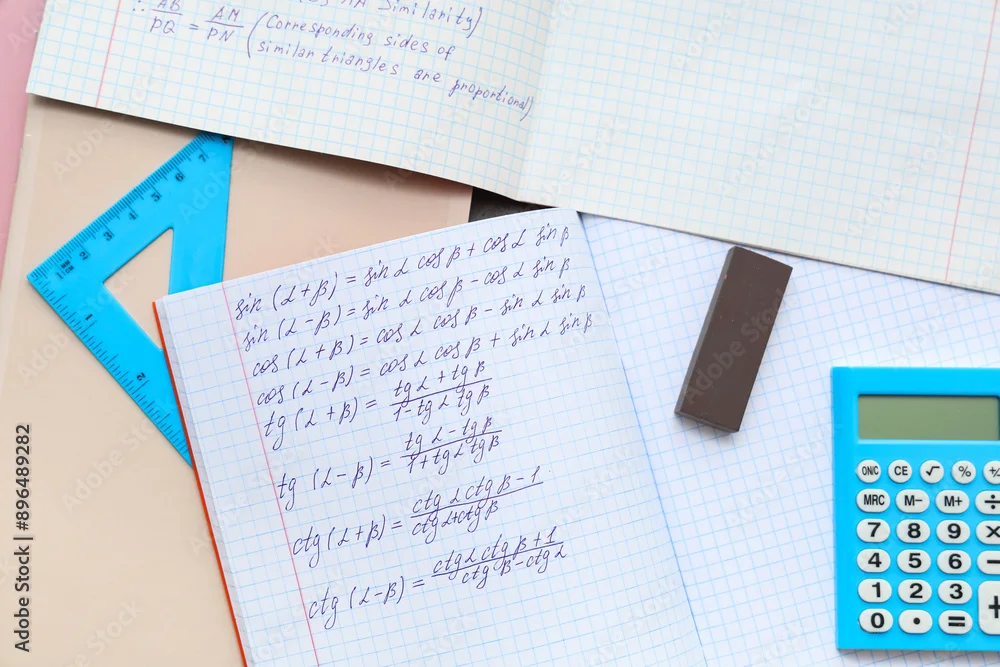 ∴ AB/PQ = AM/PN (Corresponding sides of
similar triangles are proportional)
Similarity)
sin (α+β) = sin α cos β + cos α sin β
sin (α-β) = sin α cos β - cos α sin β
cos (α+β) = cos α cos β - sin α sin β
cos (α-β) = cos α cos β + sin α sin β
tg (α+β) = tg α + tg β / 1 - tg α tg β
tg (α-β) = tg α - tg β / 1 + tg α tg β
ctg (α+β) = ctg α ctg β - 1 / ctg α + ctg β
ctg (α-β) = ctg α ctg β + 1 / ctg β - ctg α
1 2 3 4 5 6 7
1 2
ONC CE √ %
MRC M- M+ ÷
7 8 9 ×
4 5 6 -
1 2 3 +
0 • =
Adobe Stock | #896489282
Adobe Stock